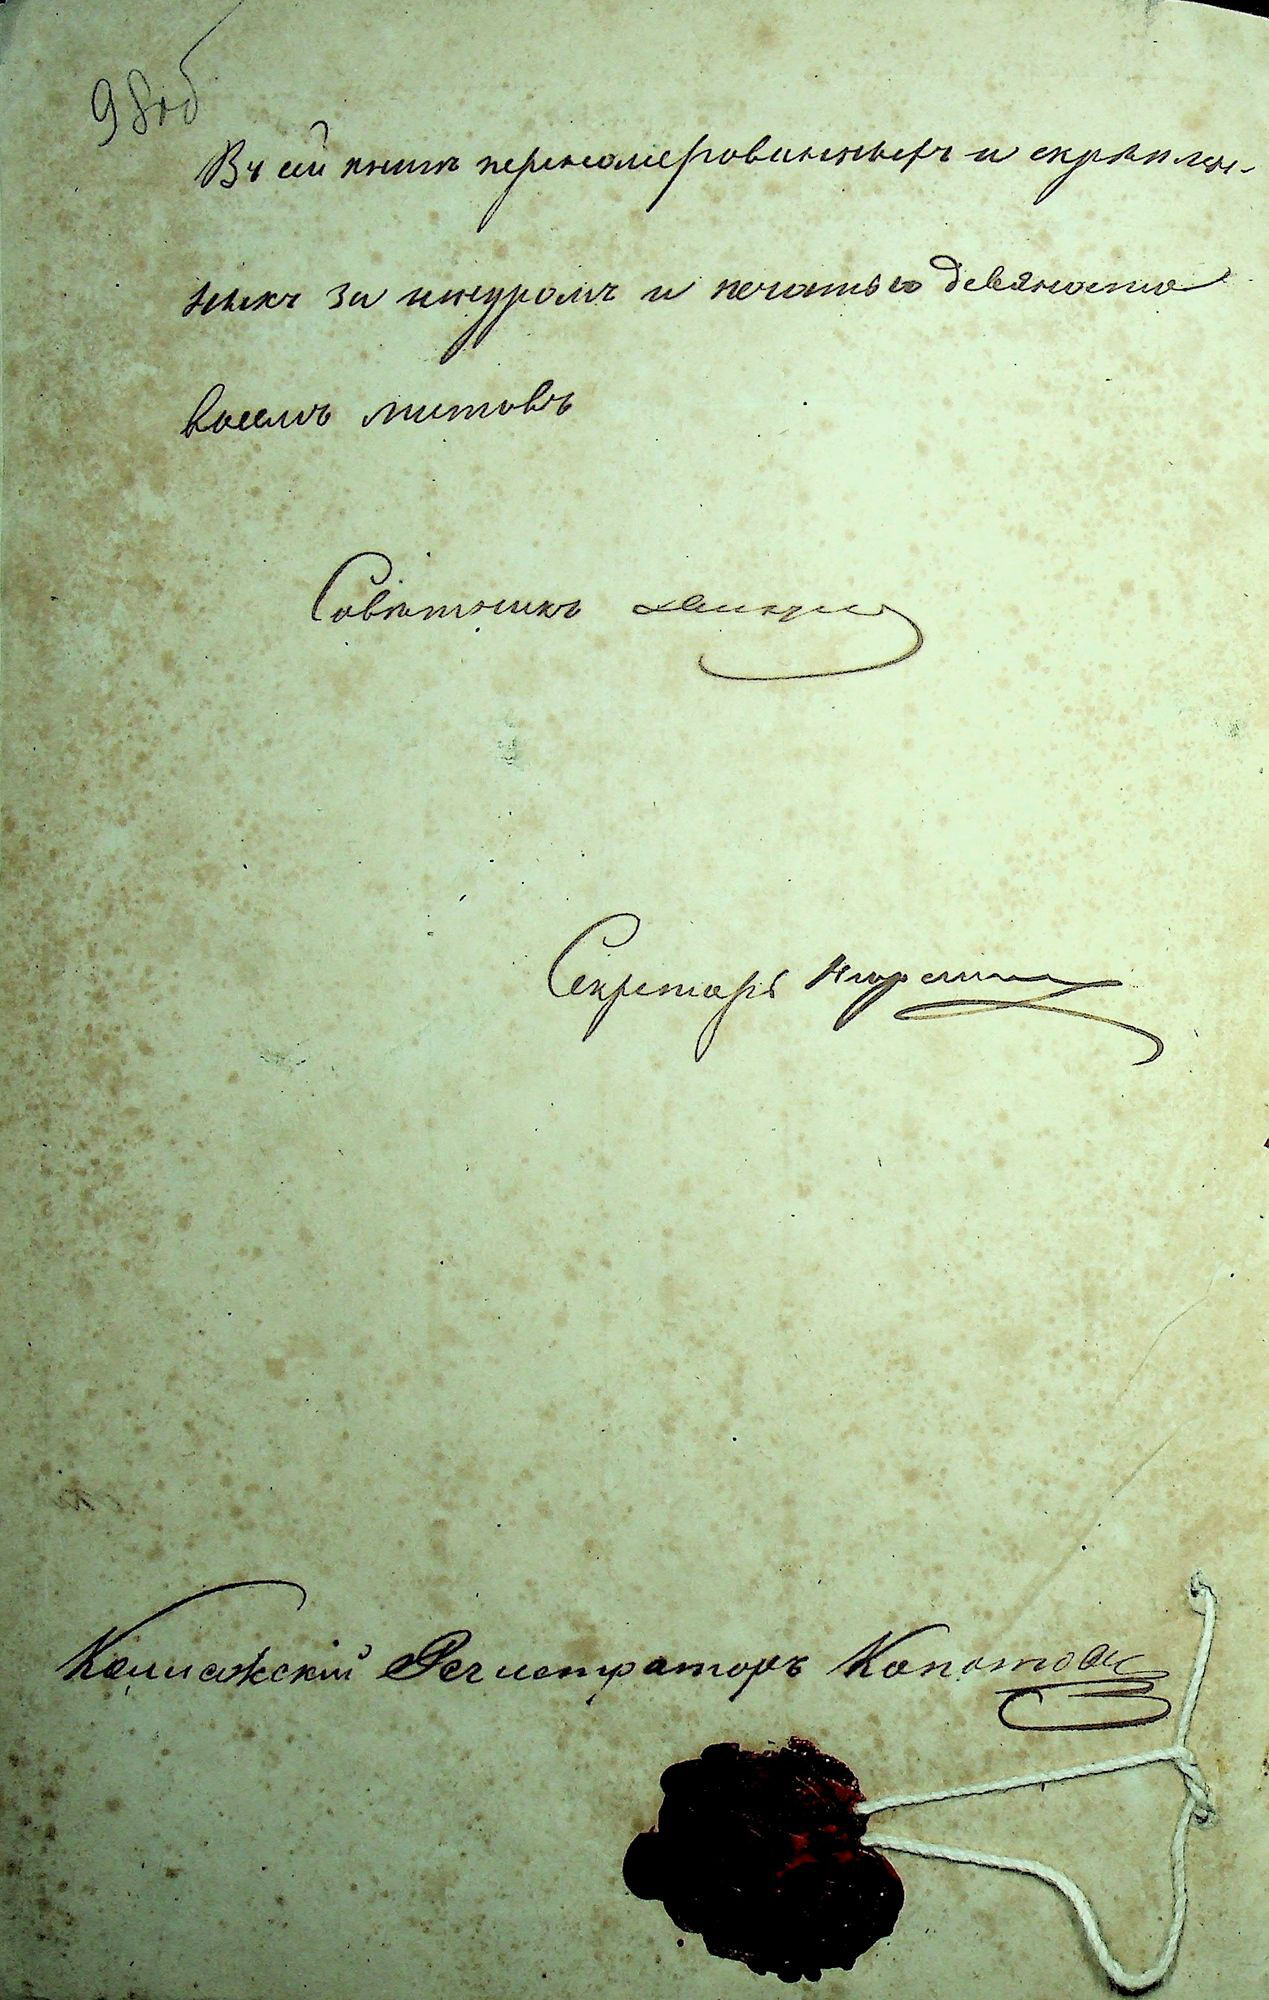 98об
Въ сей книгѣ перенумерованныхъ и скрѣплен-
ныхъ за шнуромъ и печатью девяносто
восемь листовъ
Совѣтникъ
Секретарь
Коллежскій Регистраторъ